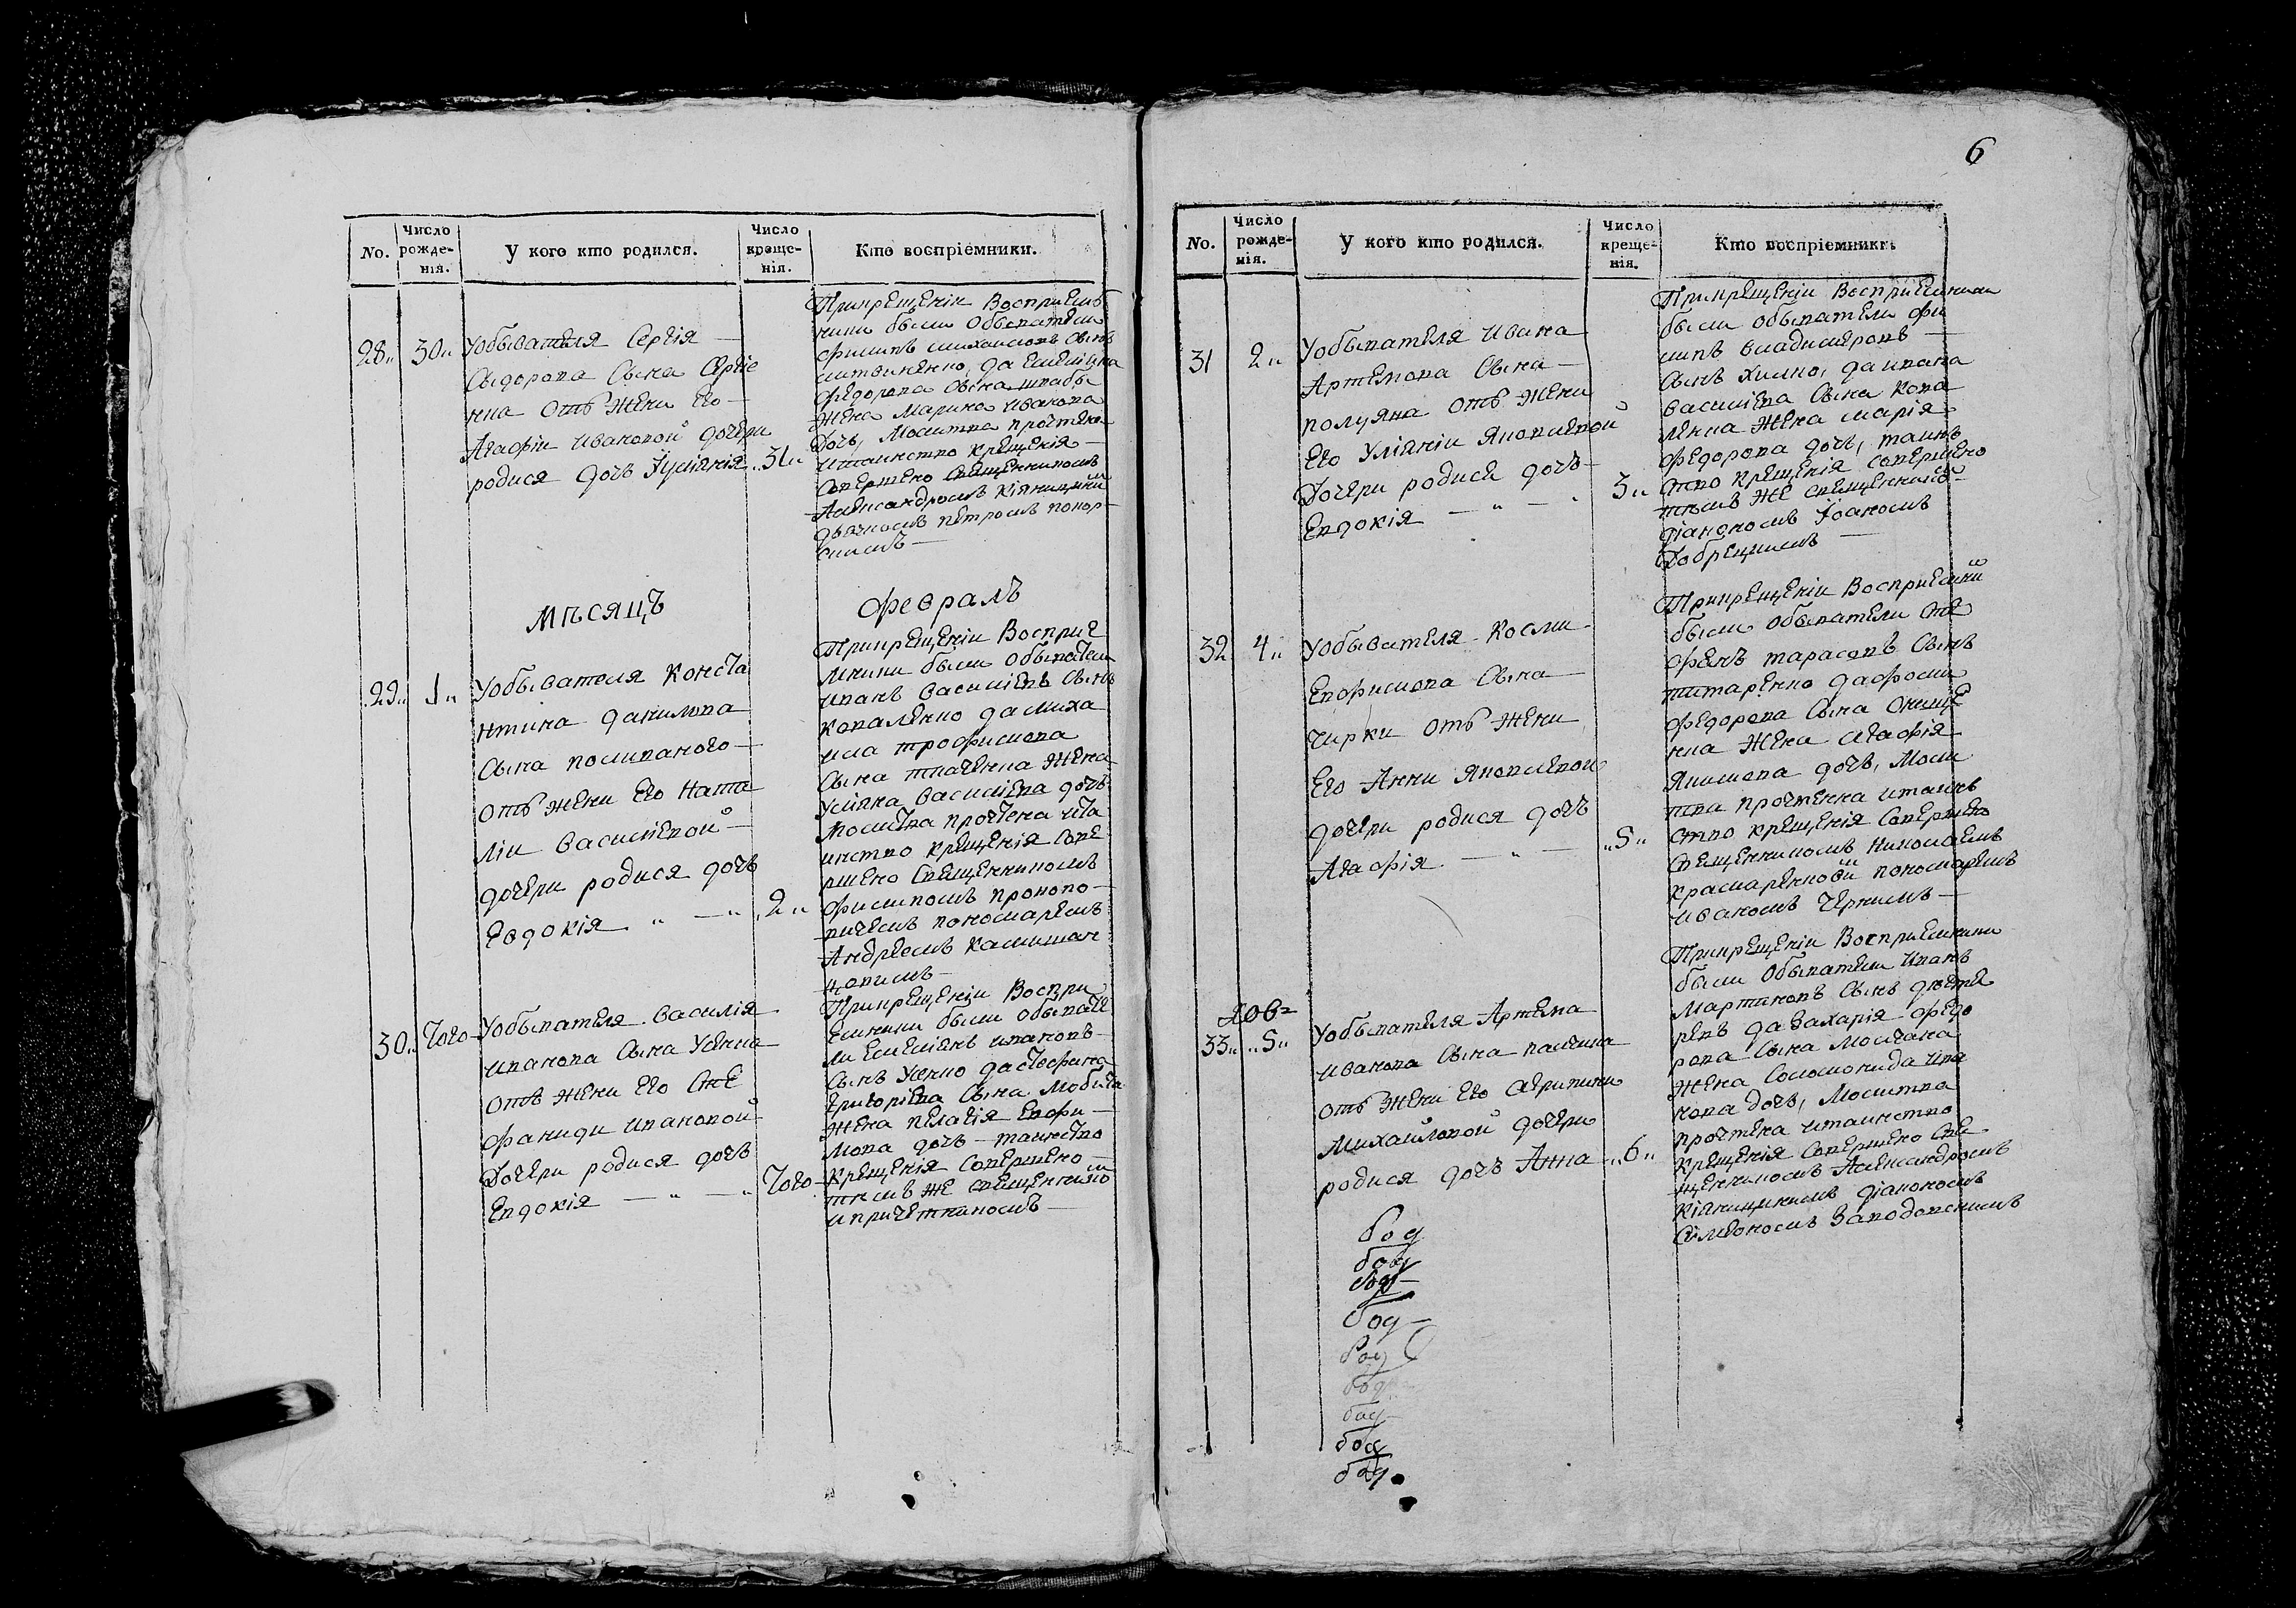 6
No.
Число рожде-нія.
У кого кто родился.
Число креще-нія.
Кто воспріемники.
28 30 Уобывателя Сергія
Сыдорова Сына Сергіе
нка отъ Жени Его
Агафіи ивановой дочери
родися дочъ Іуліянія 31
Прикрещеніи Восприем
ники были обыватели
филипъ михаиловъ Сынъ
литвиненко, да
федорова Сына
Жена Марина иванова
Дочь, Молитва прочтена
итаинство крещенія
Совершено Священникомъ
Александромъ Кіяницкий
дьячкомъ петромъ
Мѣсяцъ Февраль
29 1 Уобывателя Конста
нтина данилова
Сына
отъ жени Его Ната
ліи василіевой
дочери родися дочь
Евдокія 2
Прикрещеніи Восприе
мники были обыватели
иванъ василіевъ Сынъ
коваленко да миха
ила трофимова
Сына ткаченка Жена
Уліяна василіева дочь
Молитва прочтена ита
инство крещенія Сове
ршено Священникомъ
филипомъ прокопо
вичемъ пономаремъ
Андреемъ
30 Того Уобывателя василія
иванова Сына Усенка
отъ жени Его Сте
фаниди ивановой
Дочери родися дочь
Евдокія Того
Прикрещеніи Воспри
емники были обывате
ли Емеліянъ ивановъ
Сынъ Усенко дастефана
Григоріева Сына
Жена пелагія Евфи
мова дочь таинство
Крещенія Совершено
тѣмъ же Священнико
ипричетникомъ
No.
Число рожде-нія.
У кого кто родился.
Число креще-нія.
Кто воспріемники.
31 2 Уобывателя ивана
Артемова Сына
полуяна отъ жени
Его Уліяніи Яковлевой
Дочери родися дочь
Евдокія 3
Прикрещеніи Восприемники
были обыватели фи
липъ владимеровъ
Сынъ Химко, да ивана
василіева Сына Кова
ленка Жена марія
федорова дочь, таинъ
ство крещенія Совершено
тѣмъ же Священнико
діакономъ Іоаномъ
Добрецкимъ
32 4 Уобывателя Косми
Евфимова Сына
Чирки отъ Жени
Его Анни Яковлевой
дочери родися дочь
Агафія 5
Прикрещеніи Восприемни
были обыватели Сте
фанъ тарасовъ Сынъ
титаренко да
федорова Сына Онище
нка Жена Агафія
Якимова дочь, Моли
тва прочтенна итаинъ
ство крещенія Совершено
Священникомъ Николаемъ
Крамаренкой пономаремъ
иваномъ Чернимъ
33 5 Уобывателя Артема
иванова Сына
отъ Жени Его Агрипини
Михайловой дочери
родися дочъ Анна 6
Прикрещеніи Восприемники
были обыватели иванъ
Мартиновъ Сынъ
да Захарія федо
рова Сына Молчана
Жена Соломонида ива
нова дочь, Молитва
прочтена итаинство
Крещенія Совершено Свя
щенникомъ Александромъ
Кіяницкимъ діакономъ
Симеономъ